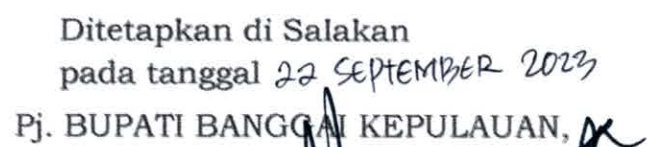 Ditetapkan di Salakan
pada tanggal 22 SEPTEMBER 2023
Pj. BUPATI BANGGAI KEPULAUAN,